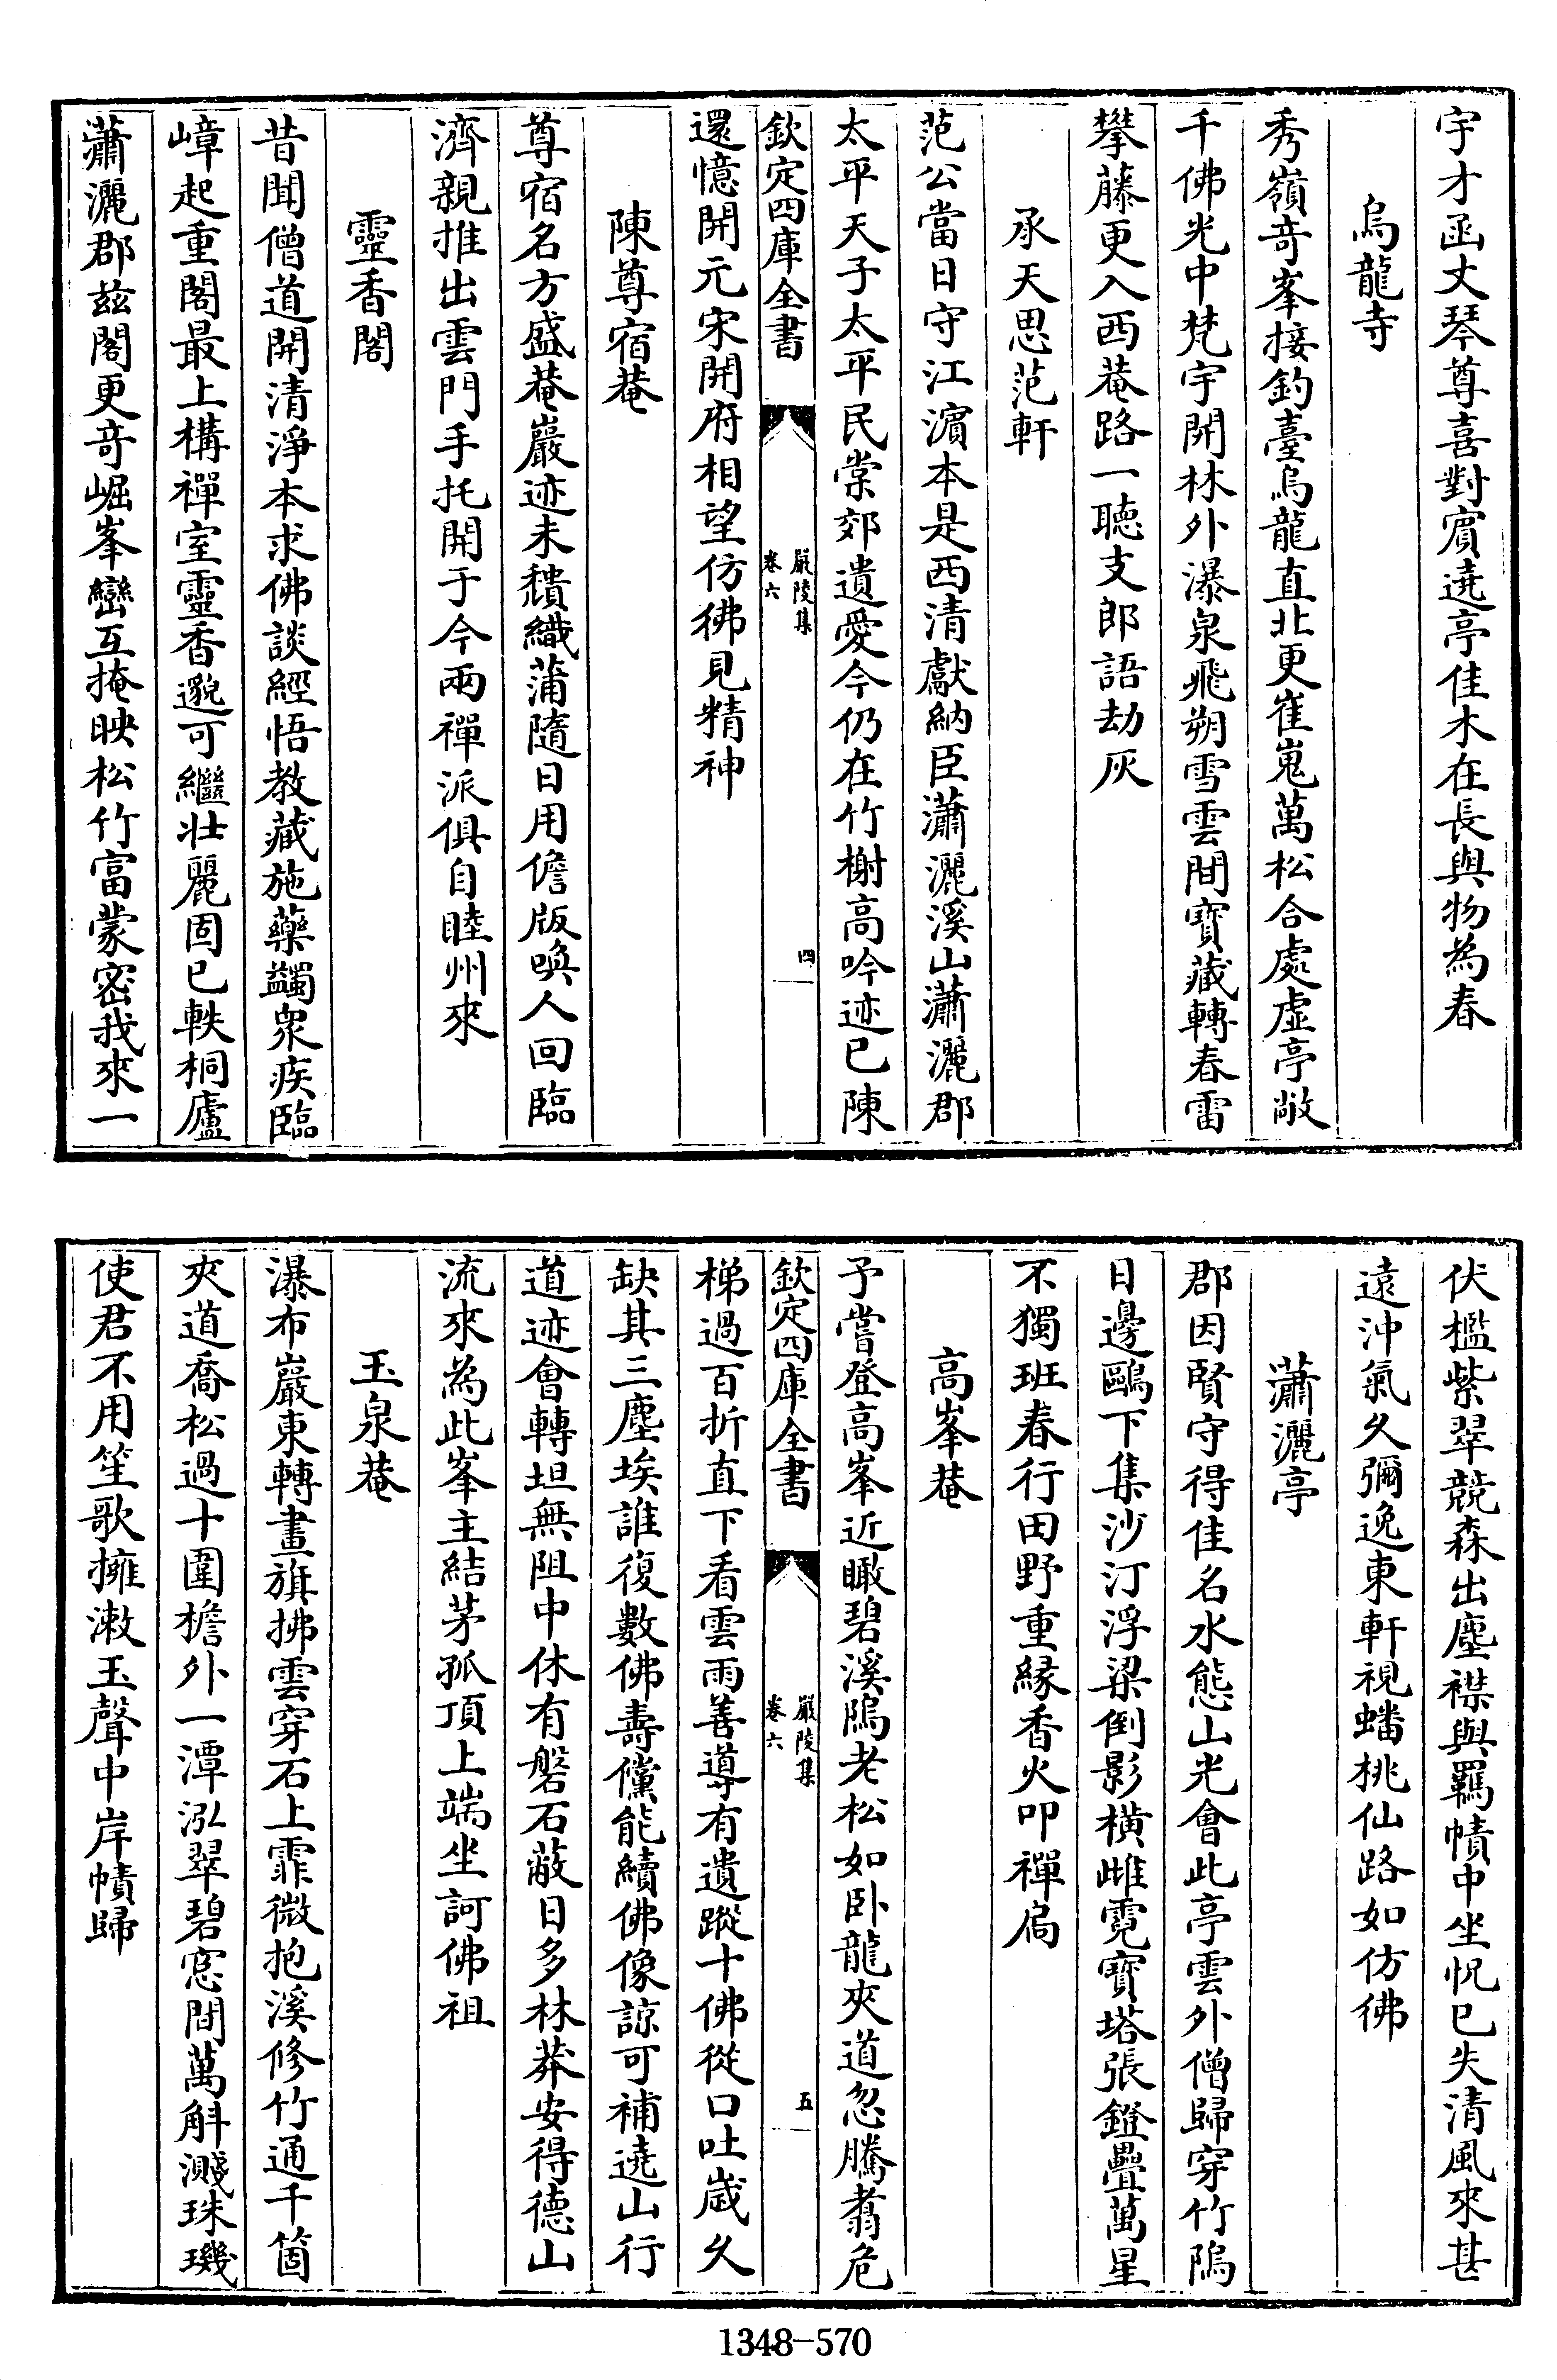 宇才函丈琴尊喜對賔遶亭佳木在長與物為春
烏龍寺
秀嶺竒峯接釣臺烏龍直北更崔嵬萬松合處虚亭敞
千佛光中梵宇開林外瀑泉飛朔雪雲間寶藏轉春雷
攀藤更入西菴路一聽支郎語劫灰
承天思范軒
范公當日守江濵本是西清獻納臣瀟灑溪山瀟灑郡
太平天子太平民棠郊遺愛今仍在竹榭高吟迹已陳
欽定四庫全書
嚴陵集
卷六
四
還憶開元宋開府相望仿彿見精神
陳尊宿菴
尊宿名方盛菴巖迹未穨織蒲隨日用儋版喚人回臨
濟親推出雲門手托開于今兩禪派俱自睦州來
靈香閣
昔聞僧道開清淨本求佛談經悟教藏施藥蠲衆疾臨
嶂起重閣最上構禪室靈香邈可繼壯麗固已軼桐廬
瀟灑郡兹閣更竒崛峯巒互掩映松竹富蒙密我來一
伏檻紫翠競森出塵襟與羈幘中坐怳已失清風來甚
遠沖氣久彌逸東軒視蟠桃仙路如仿彿
瀟灑亭
郡因賢守得佳名水態山光會此亭雲外僧歸穿竹隖
日邊鷗下集沙汀浮梁倒影橫雌霓寶塔張鐙疊萬星
不獨班春行田野重縁香火叩禪扃
高峯菴
予嘗登高峯近瞰碧溪隖老松如卧龍夾道忽騰翥危
欽定四庫全書
嚴陵集
卷六
五
梯過百折直下看雲雨善導有遺蹤十佛從口吐歲久
缺其三塵埃誰復數佛壽儻能續佛像諒可補遶山行
道迹會轉坦無阻中休有磐石蔽日多林莽安得德山
流來為此峯主結茅孤頂上端坐訶佛祖
玉泉菴
瀑布巖東轉畫旗拂雲穿石上霏微抱溪修竹通千箇
夾道喬松過十圍檐外一潭泓翠碧窓間萬斛濺珠璣
使君不用笙歌擁漱玉聲中岸幘歸
1348-570